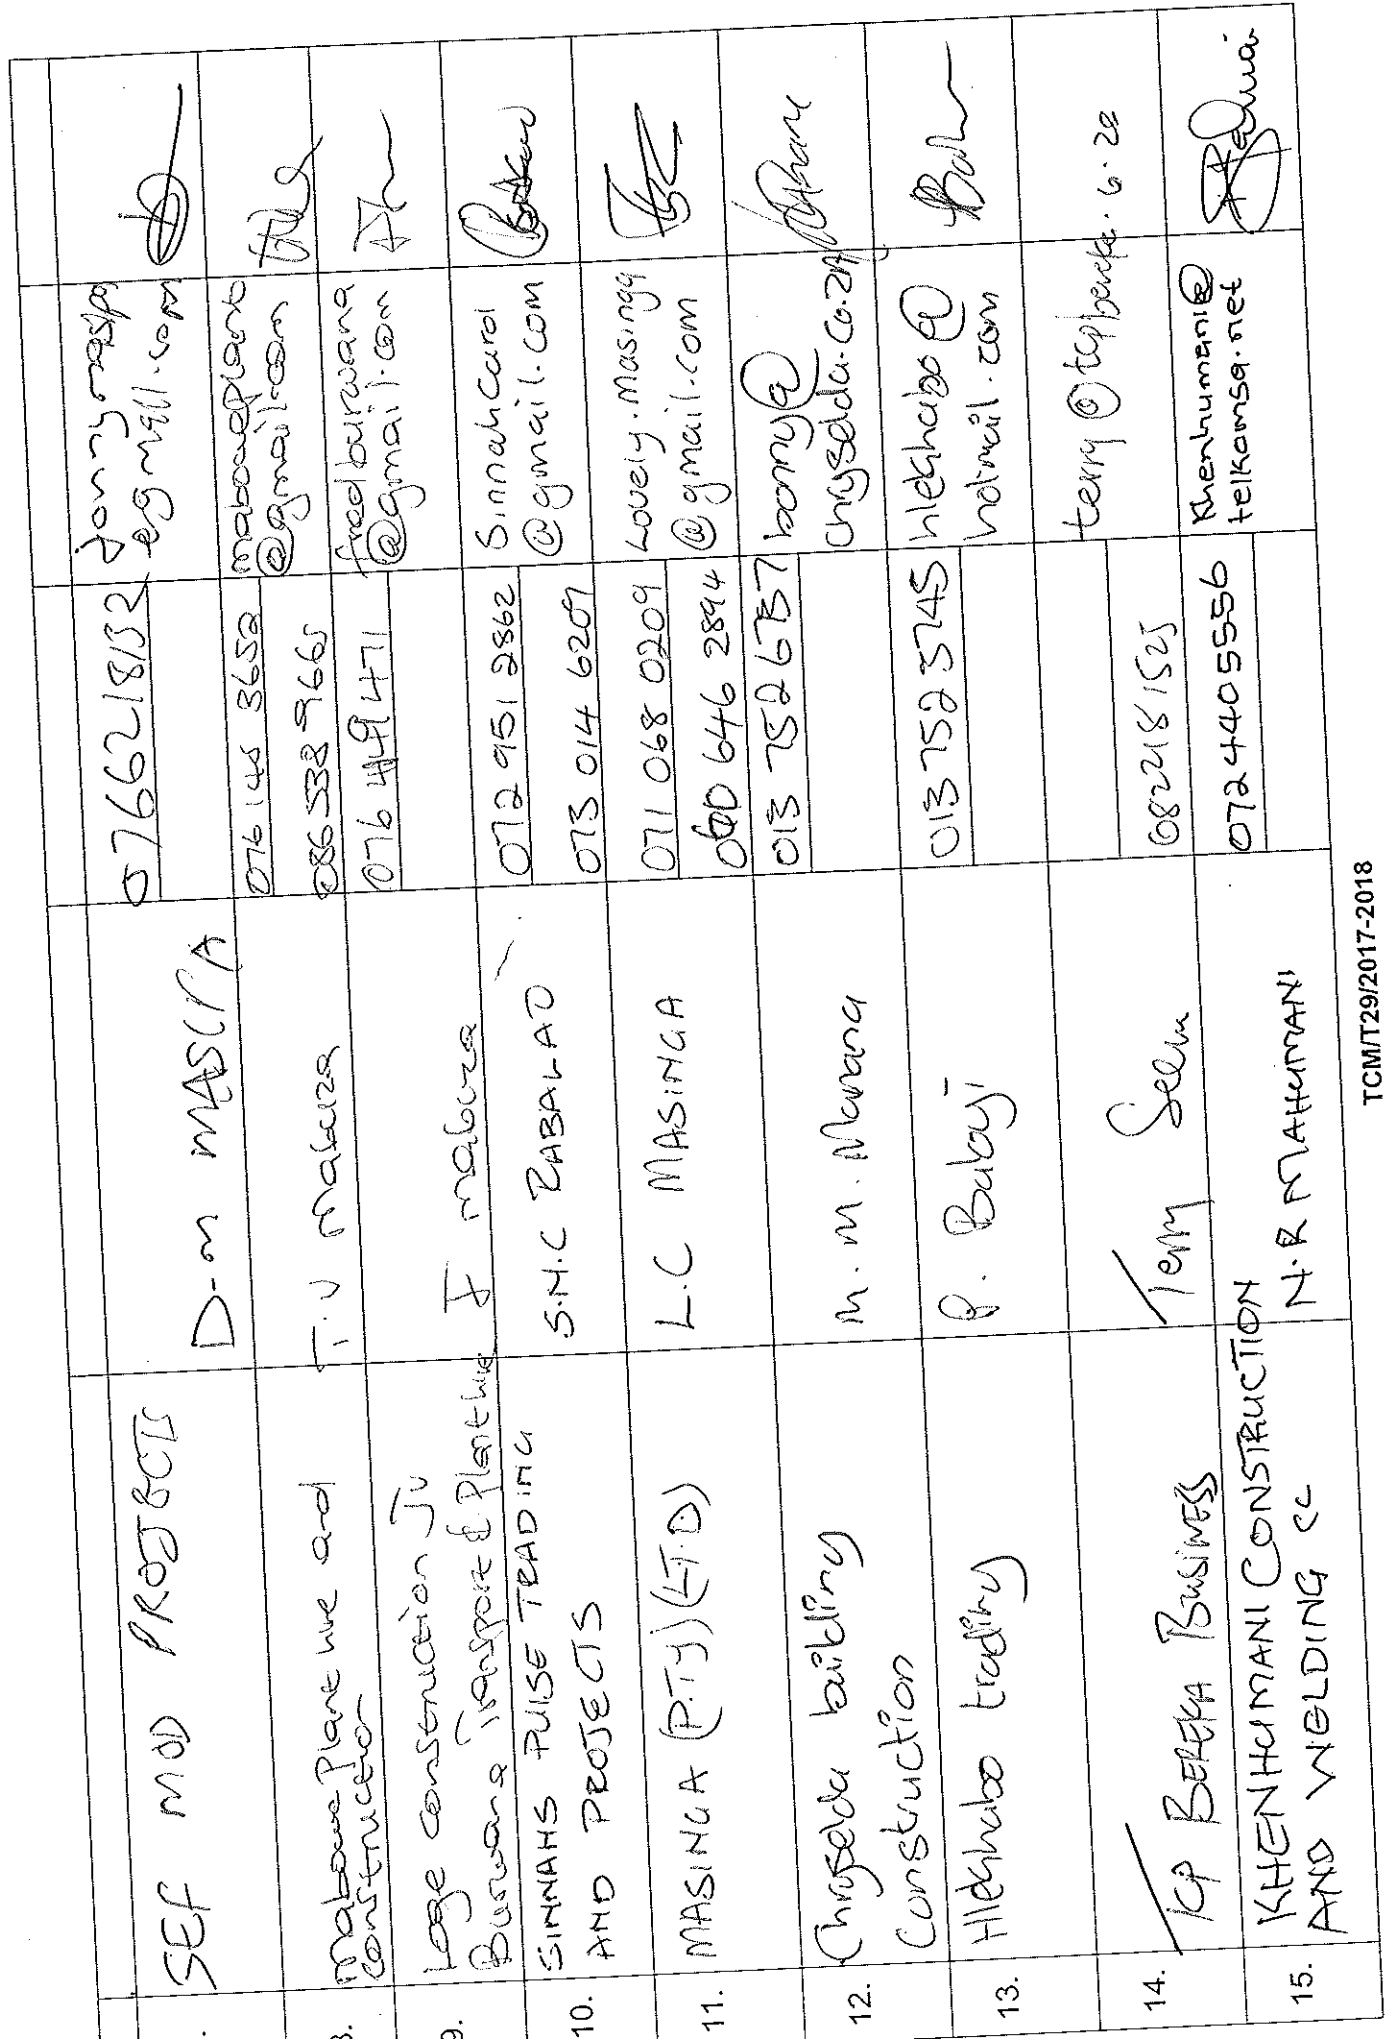 SEF MOD PROJECTS
D-M MASIPA
0766218132
@gmail.com
8.
Mabowe Plant hire and
construction
T.V Mabuza
076 148 3652
086 538 9665
maboweplant
@gmail.com
9.
Loge construction JV
Burwana Transport & Planthire
F mabuza
076 449 471
fredburwana
@gmail.com
10.
SINNAHS PULSE TRADING
AND PROJECTS
S.N.C ZABALAO
072 951 2862
073 014 6209
SinnahCarol
@gmail.com
11.
MASINGA (P.TY) (L.T.D)
L.C MASINGA
071 068 0209
060 646 2894
Lovely.Masinga
@gmail.com
12.
Chryselda building
Construction
M. M. Manana
013 752 6757
bonny@
chryselda.co.za
13.
Hleshabo trading
P. Baloyi
013 752 3745
hleshabo@
hotmail.com
14.
TCP BEREKA BUSINESS
Terry Seem
0822181525
terry@tcpbereka.
15.
KHENHUMANI CONSTRUCTION
AND WELDING CC
N.R MAHUMANI
0724405556
Khenhumani@
telkomsa.net
TCM/T29/2017-2018